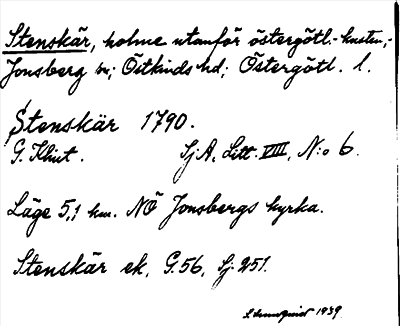 Stenskär, holme utanför östergötl.-kusten,-
Jonsberg sn; Östkinds hd; Östergötl. l.
Stenskär 1790.
G. Klint. SjA, Litt. VIII, N:o 6.
Läge 5,1 km. NÖ Jonsbergs kyrka.
Stenskär ek, G. 56, Sj. 251.
1939